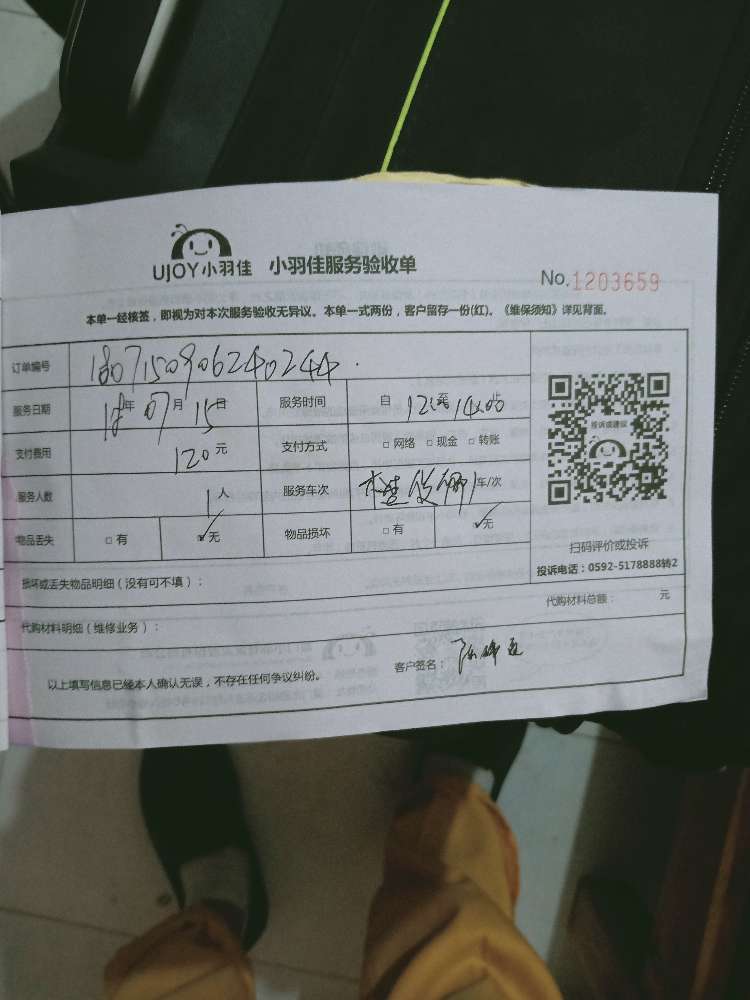 UJOY小羽佳 小羽佳服务验收单
No.1203659
本单一经核签，即视为对本次服务验收无异议。本单一式两份，客户留存一份(红)。《维保须知》详见背面。
订单编号 1807150906240244
服务日期 18年07月15日 服务时间 自12:00至14:00止
支付费用 120元 支付方式 □网络 □现金 □转账
服务人数 1人 服务车次 1车/次
物品丢失 □有 ✓无 物品损坏 □有 ✓无
投诉或建议
扫码评价或投诉
投诉电话：0592-5178888转2
损坏或丢失物品明细（没有可不填）：
代购材料总额： 元
代购材料明细（维修业务）：
以上填写信息已经本人确认无误，不存在任何争议纠纷。
客户签名：